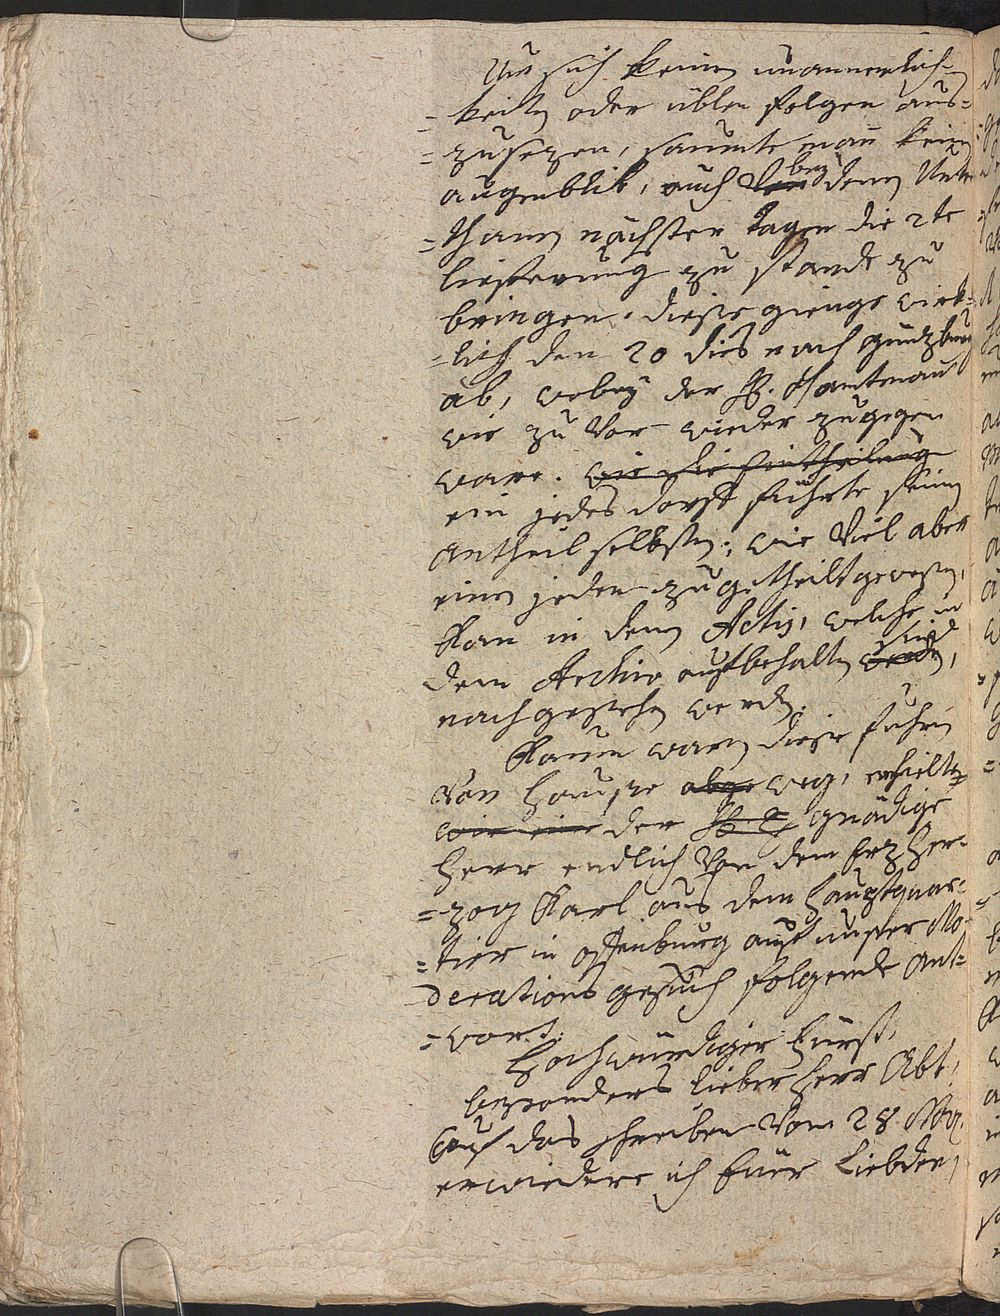 Um sich keinen unannemlich-
=keiten oder üblen folgen aus=
=zusezen, saumte man kein
augenblik, auch bey denen Unter
=thanen nächster tagen die 2te
lieferung zu stande zu
bringen. diese gienge wirk=
=lich den 20 dies nach günzburg
ab, wobey der H. Oberamtmann
wie zu vor wieder zugegen
ware. wie die Eintheilung
ein jedes dorff führte seinen
antheil selbsten; wie viel aber
einen jeden zugetheilt gewesen,
kan in denen Actis, welche in
dem Archiv aufbehalten sind,
nachgesehen werden.
Kaum waren diese fuhren
von Hause abge weg, erhielte
wie eine der gnädige
Herr endlich von dem Erzher=
=zog Karl aus dem Hauptquar=
=tier in offenburg auf unser Mo=
derations gesuch folgende Ant=
=wort.
Hochwürdiger fürst,
besonders lieber Herr Abt,
Auf das schreiben vom 28. Nov.
erwiedere ich Euer Liebden,